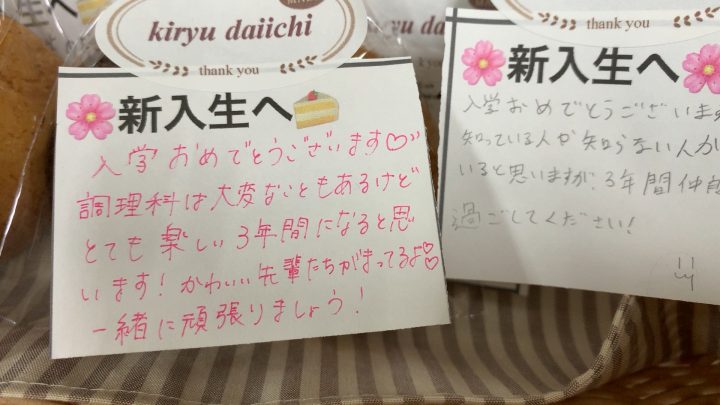 kiryu daiichi
thank you
新入生へ
入学おめでとうございます♡
調理科は大変なこともあるけど
とても楽しい3年間になると思
います！かわいい先輩たちがまってるよ♡♡
一緒に頑張りましょう！
thank you
新入生へ
入学おめでとうございます
知っている人が知らない人が
いると思いますが、3年間仲良
過ごしてください！